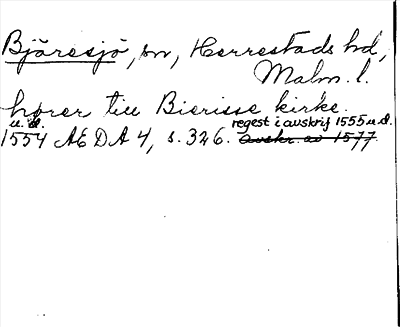 Bjäresjö, sn, Herrestads hd,
Malm. l.
hører till Bierisse kirke.
u. d. regest i avskrift 1555 u.d.
1554 AEDA 4, s. 326. avskr. av 1577.